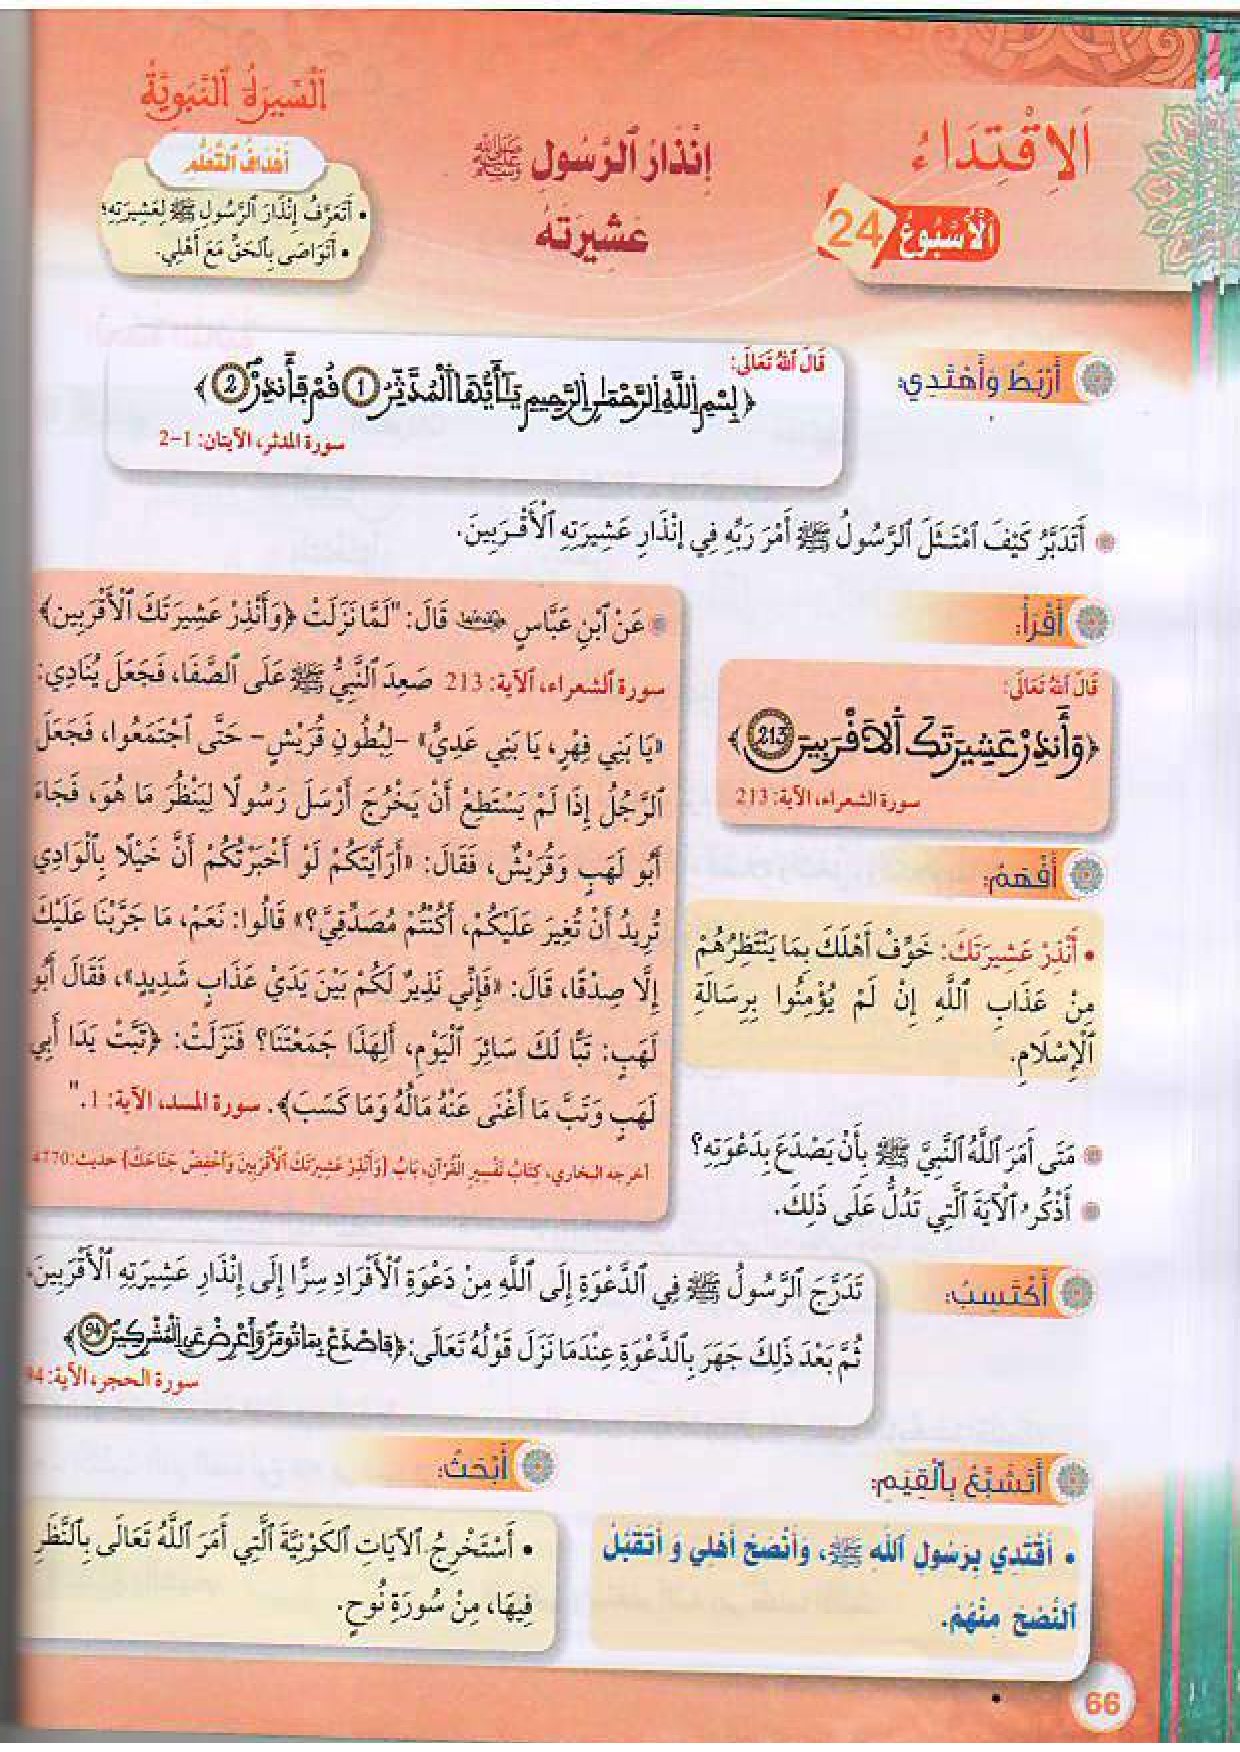 اَلِاقْتِدَاءُ
اَلْأُسْبُوعُ 24
إِنْذَارُ ٱلرَّسُولِ ﷺ
عَشِيرَتَهُ
اَلسِّيرَةُ ٱلنَّبَوِيَّةُ
أَهْدَافُ ٱلتَّعَلُّمِ
• أَتَعَرَّفُ إِنْذَارَ ٱلرَّسُولِ ﷺ لِعَشِيرَتِهِ؛
• أَتَوَاصَى بِٱلْحَقِّ مَعَ أَهْلِي.
أَرْبِطُ وَأَهْتَدِي:
قَالَ ٱللَّهُ تَعَالَى:
﴿بِسْمِ اِللَّهِ اِلرَّحْمَٰنِ اِلرَّحِيمِ يَٰٓأَيُّهَا اَلْمُدَّثِّرُ 1 قُمْ فَأَنذِرْ 2﴾
سورة المدثر، الآيتان: 1-2
أَتَدَبَّرُ كَيْفَ ٱمْتَثَلَ ٱلرَّسُولُ ﷺ أَمْرَ رَبِّهِ فِي إِنْذَارِ عَشِيرَتِهِ ٱلْأَقْرَبِينَ.
أَقْرَأُ:
قَالَ ٱللَّهُ تَعَالَى:
﴿وَأَنذِرْ عَشِيرَتَكَ اَلَاقْرَبِينَ 213﴾
سورة الشعراء، الآية: 213
عَنْ ٱبْنِ عَبَّاسٍ رضي الله عنهما قَالَ: "لَمَّا نَزَلَتْ ﴿وَأَنْذِرْ عَشِيرَتَكَ ٱلْأَقْرَبِين﴾
سورة ٱلشعراء، ٱلآية: 213 صَعِدَ ٱلنَّبِيُّ ﷺ عَلَى ٱلصَّفَا، فَجَعَلَ يُنَادِي:
«يَا بَنِي فِهْرٍ، يَا بَنِي عَدِيٍّ» -لِبُطُونِ قُرَيْشٍ- حَتَّى ٱجْتَمَعُوا، فَجَعَلَ
ٱلرَّجُلُ إِذَا لَمْ يَسْتَطِعْ أَنْ يَخْرُجَ أَرْسَلَ رَسُولًا لِيَنْظُرَ مَا هُوَ، فَجَاءَ
أَبُو لَهَبٍ وَقُرَيْشٌ، فَقَالَ: «أَرَأَيْتَكُمْ لَوْ أَخْبَرْتُكُمْ أَنَّ خَيْلًا بِٱلْوَادِي
تُرِيدُ أَنْ تُغِيرَ عَلَيْكُمْ، أَكُنْتُمْ مُصَدِّقِيَّ؟» قَالُوا: نَعَمْ، مَا جَرَّبْنَا عَلَيْكَ
إِلَّا صِدْقًا، قَالَ: «فَإِنِّي نَذِيرٌ لَكُمْ بَيْنَ يَدَيْ عَذَابٍ شَدِيدٍ»، فَقَالَ أَبُو
لَهَبٍ: تَبًّا لَكَ سَائِرَ ٱلْيَوْمِ، أَلِهَذَا جَمَعْتَنَا؟ فَنَزَلَتْ: ﴿تَبَّتْ يَدَا أَبِي
لَهَبٍ وَتَبَّ مَا أَغْنَى عَنْهُ مَالُهُ وَمَا كَسَبَ﴾. سورة المسد، الآية: 1."
أخرجه البخاري، كِتَابُ تَفْسِيرِ القُرْآنِ، بَابُ {وَأَنْذِرْ عَشِيرَتَكَ الأَقْرَبِينَ وَٱخْفِضْ جَنَاحَكَ} حديث: 4770
أَفْهَمُ:
• أَنْذِرْ عَشِيرَتَكَ: خَوِّفْ أَهْلَكَ بِمَا يَنْتَظِرُهُمْ
مِنْ عَذَابِ ٱللَّهِ إِنْ لَمْ يُؤْمِنُوا بِرِسَالَةِ
ٱلْإِسْلَامِ.
مَتَى أَمَرَ ٱللَّهُ ٱلنَّبِيَّ ﷺ بِأَنْ يَصْدَعَ بِدَعْوَتِهِ؟
أَذْكُرُ ٱلْآيَةَ ٱلَّتِي تَدُلُّ عَلَى ذَلِكَ.
أَكْتَسِبُ:
تَدَرَّجَ ٱلرَّسُولُ ﷺ فِي ٱلدَّعْوَةِ إِلَى ٱللَّهِ مِنْ دَعْوَةِ ٱلْأَفْرَادِ سِرًّا إِلَى إِنْذَارِ عَشِيرَتِهِ ٱلْأَقْرَبِينَ،
ثُمَّ بَعْدَ ذَلِكَ جَهَرَ بِٱلدَّعْوَةِ عِنْدَمَا نَزَلَ قَوْلُهُ تَعَالَى: ﴿فَاصْدَعْ بِمَا تُومَرُ وَأَعْرِضْ عَنِ اِلْمُشْرِكِينَ 94﴾
سورة الحجر، الآية: 94
أَتَشَبَّعُ بِٱلْقِيَمِ:
• أَقْتَدِي بِرَسُولِ ٱللَّهِ ﷺ، وَأَنْصَحُ أَهْلِي وَ أَتَقَبَّلُ
ٱلنُّصْحَ مِنْهُمْ.
أَبْحَثُ:
• أَسْتَخْرِجُ ٱلْآيَاتِ ٱلْكَوْنِيَّةَ ٱلَّتِي أَمَرَ ٱللَّهُ تَعَالَى بِٱلنَّظَرِ
فِيهَا، مِنْ سُورَةِ نُوحٍ.
66